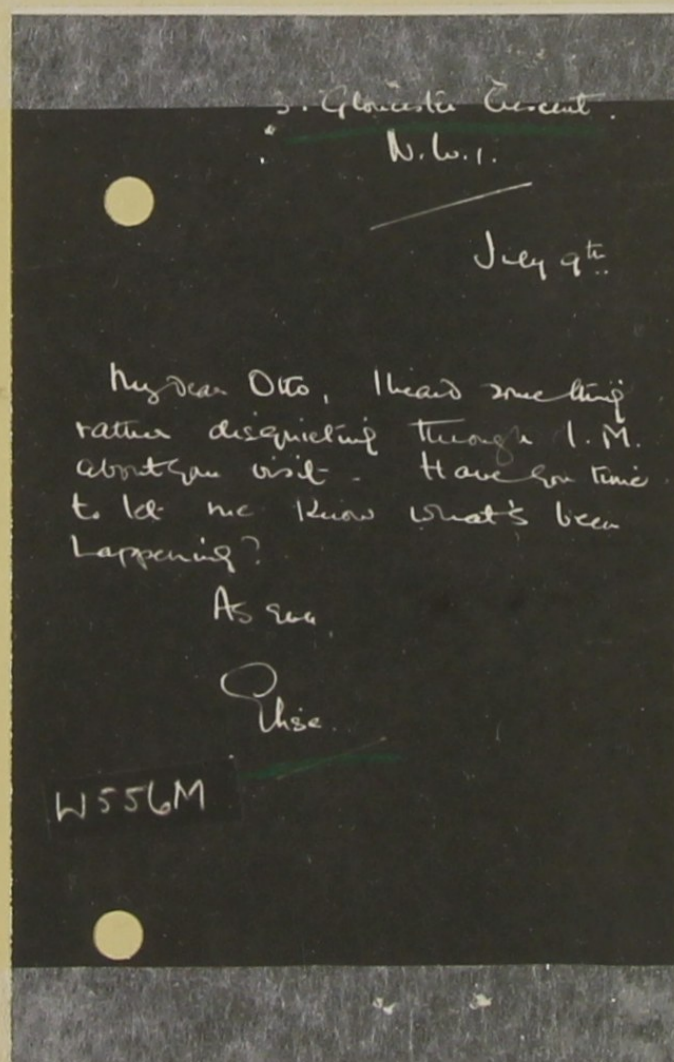 3. Gloucester Crescent.
N.W.1.
July 9th.
My dear Otto, I heard something
rather disquieting through I. M.
about your visit - Have you time
to let me know what's been
happening?
As ever
W556M